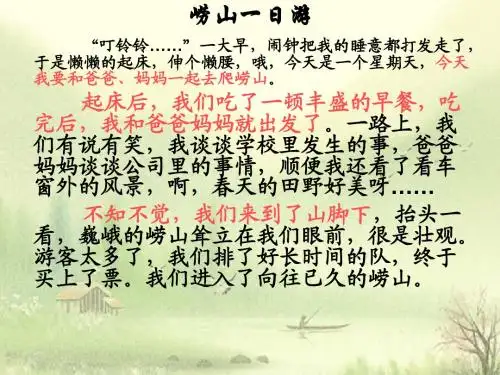 崂山一日游
“叮铃铃……”一大早，闹钟把我的睡意都打发走了，
于是懒懒的起床，伸个懒腰，哦，今天是一个星期天，今天
我要和爸爸、妈妈一起去爬崂山。
起床后，我们吃了一顿丰盛的早餐，吃
完后，我和爸爸妈妈就出发了。一路上，我
们有说有笑，我谈谈学校里发生的事，爸爸
妈妈谈谈公司里的事情，顺便我还看了看车
窗外的风景，啊，春天的田野好美呀……
不知不觉，我们来到了山脚下，抬头一
看，巍峨的崂山耸立在我们眼前，很是壮观。
游客太多了，我们排了好长时间的队，终于
买上了票。我们进入了向往已久的崂山。